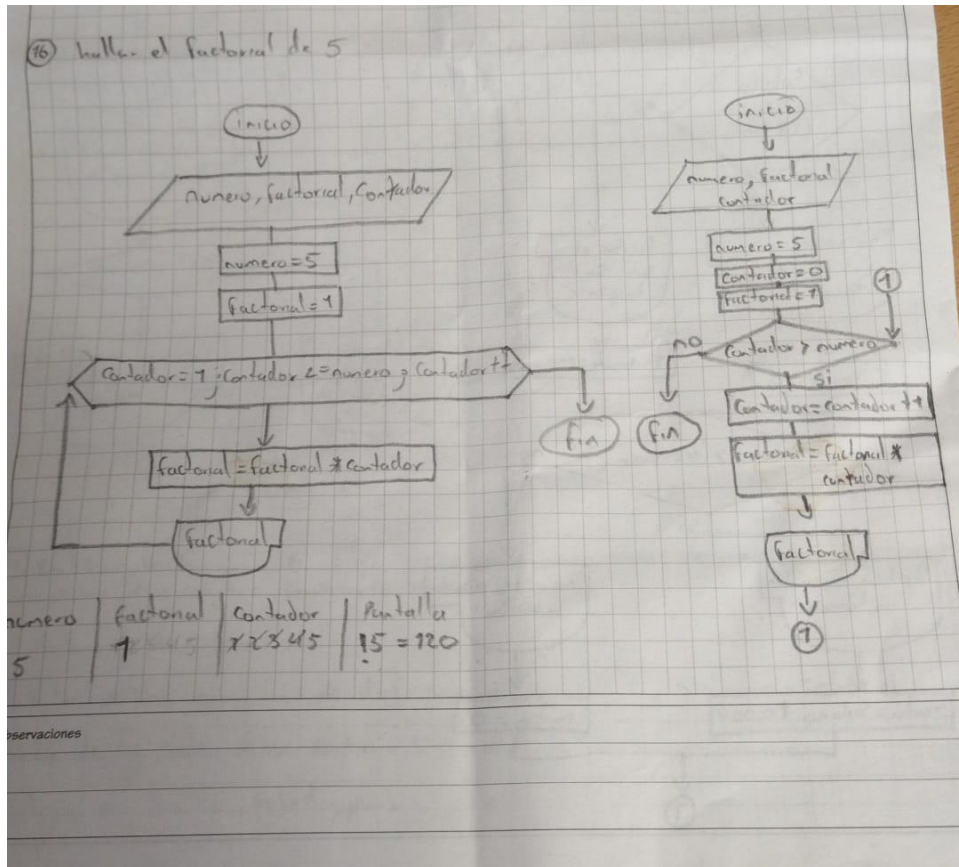 16 hallar el factorial de 5
inicio
numero, factorial, contador
numero=5
factorial=1
contador=1; contador <=numero; contador++
fin
factorial=factorial * contador
factorial
numero | factorial | contador | Pantalla
5 | 1 | 1 2 3 4 5 | !5 = 120
inicio
numero, factorial
contador
numero=5
contador=0
factorial=1
1
contador > numero
no
si
fin
contador=contador++
factorial=factorial *
contador
factorial
1
observaciones